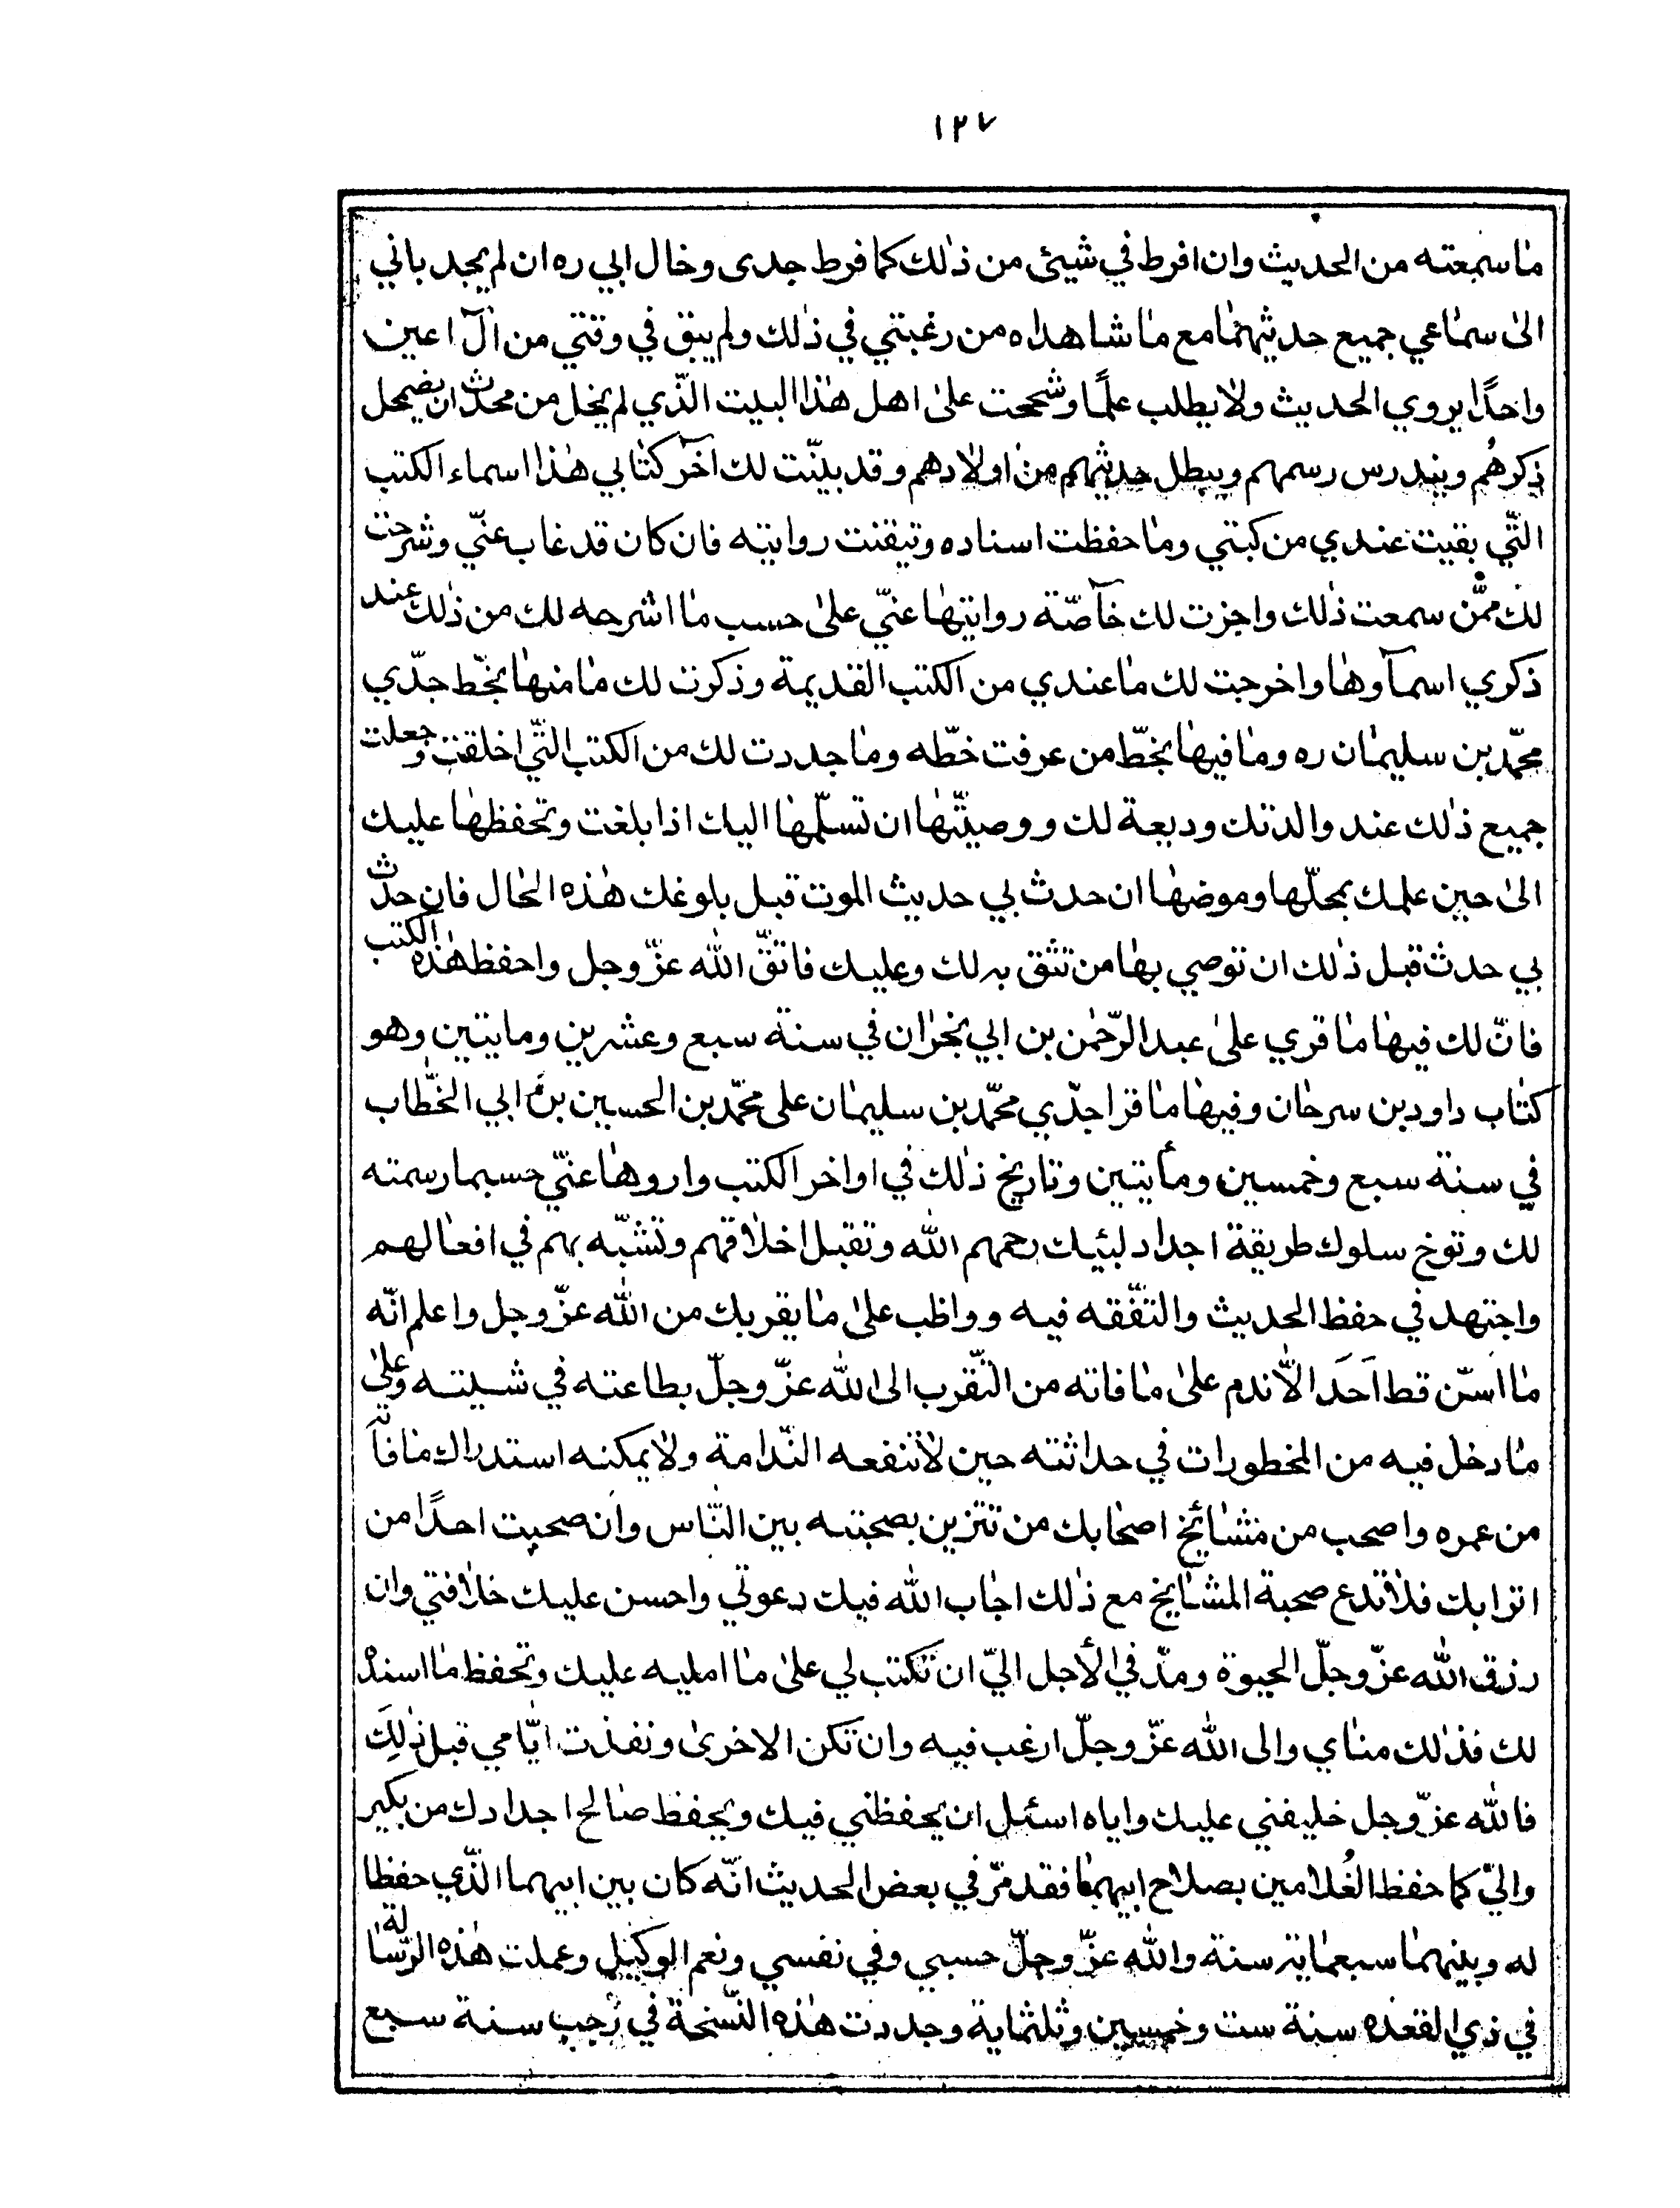 ١٢٧
ما سمعته من الحديث وان افرط في شيئ من ذلك كما فرط جدى وخال ابي ره ان لم يجد باني
الى سماعي جميع حديثهما مع ما شاهداه من رغبتي في ذلك ولم يبق في وقتي من آل اعين
واحدًا يروي الحديث ولا يطلب علمًا وشححت على اهل هذا البيت الّذي لم يخل من محدّث ان يضمحل
ذكرهُم ويندرس رسمهم ويبطل حديثهم من اولادهم وقد بيّنت لك آخر كتابي هذا اسماء الكتب
الّتي بقيت عندي من كتبتي وما حفظت اسناده وتيقنت روايته فان كان قد غاب عنّي وشرحت
لك ممّن سمعت ذلك واجزت لك خآصّة روايتها عنّي على حسب ما اشرحه لك من ذلك عند
ذكري اسمآوها واخرجت لك ما عندي من الكتب القديمة وذكرت لك ما منها بخّط جدّي
محمّد بن سليمان ره وما فيها بخطّ من عرفت خطّه وما جددت لك من الكتب الّتي اخلقت وجعلت
جميع ذلك عند والدتك وديعة لك ووصيّتها ان تسلّمها اليك اذا بلغت وتحفظها عليك
الى حين علمك بمحلّها وموضها ان حدث بي حديث الموت قبل بلوغك هذه الحال فان حدث
بي حدث قبل ذلك ان توصي بها من تثق به لك وعليك فاتّق الله عزّ وجل واحفظ هذه الكتب
فانّ لك فيها ما قري على عبد الرّحمن بن ابي نجران في سنة سبع وعشرين ومايتين وهو
كتاب داود بن سرحان وفيها ما قرا جدّي محمّد بن سليمان على محمّد بن الحسين بن ابي الخّطاب
في سنة سبع وخمسين ومأيتين وتاريخ ذلك في اواخر الكتب واروها عنّي حسبما رسمته
لك وتوخ سلوك طريقة اجداد لبئيك رحمهم الله وتقبل اخلاقهم وتشبّه بهم في افعالهم
واجتهد في حفظ الحديث والتّفقه فيه وواظب على ما يقربك من الله عزّ وجل واعلم انّه
ما اسّن قط اَحَد الّا ندم على ما فاته من التّقرب الى الله عزّ وجلّ بطاعته في شبيته وعلى
ما دخل فيه من المخطورات في حداثته حين لا تنفعه النّدامة ولا يمكنه استدراك ما فآت
من عمره واصحب من مشائخ اصحابك من تتزين بصحبته بين النّاس وان صحبت احدًا من
اترابك فلا تدع صحبة المشايخ مع ذلك اجاب الله فيك دعوتي واحسن عليك خلافتي وان
رزق الله عزّ وجلّ الحيوة ومدّ في الأجل اليّ ان تكتب لي على ما امليه عليك وتحفظ ما اسنده
لك فذلك مناي والى الله عزّ وجلّ ارغب فيه وان تكن الاخرى ونفذت ايّامي قبل ذلِكَ
فالله عزّ وجل خليفني عليك واياه اسئل ان يحفظني فيك ويحفظ صالح اجدادك من بكير
واليّ كما حفظ الغُلامين بصلاح ابيهما فقد مرّ في بعض الحديث انّه كان بين ابيهما الّذي حفظا
له وبينهما سبعماية سنة والله عزّ وجلّ حسبي وفي نفسي ونعم الوكيل وعملت هذه الرّسالة
في ذي القعده سنة ست وخمسين وثلثماية وجددت هذه النّسخة في رجب سنة سبع